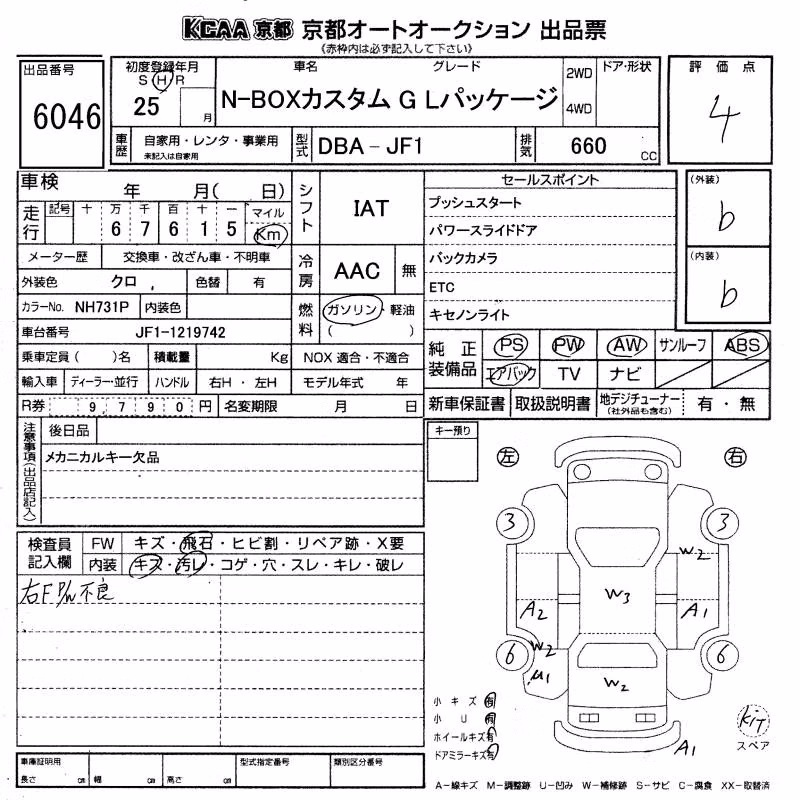 KCAA 京都 京都オートオークション 出品票
《赤枠内は必ず記入して下さい》
出品番号
6046
初度登録年月
S H R
25 月
車名 グレード
N-BOXカスタム G Lパッケージ
2WD
4WD
ドア・形状
評価点
4
車歴
自家用・レンタ・事業用
未記入は自家用
型式
DBA-JF1
排気
660 CC
車検 年 月( 日)
走行
記号 十 万 千 百 十 一 マイル
6 7 6 1 5 Km
メーター歴 交換車・改ざん車・不明車
外装色 クロ 色替 有
カラーNo. NH731P 内装色
車台番号 JF1-1219742
乗車定員( )名 積載量 Kg
輸入車 ディーラー・並行 ハンドル 右H・左H
R券 9,790円 名変期限 月 日
シフト
IAT
冷房
AAC 無
燃料
ガソリン・軽油
( )
NOX 適合・不適合
モデル年式 年
セールスポイント
プッシュスタート
パワースライドドア
バックカメラ
ETC
キセノンライト
(外装)
b
(内装)
b
純正装備品
PS PW AW サンルーフ ABS
エアバック TV ナビ
新車保証書 取扱説明書 地デジチューナー(社外品も含む) 有・無
注意事項(出品店記入)
後日品
メカニカルキー欠品
キー預り
左
右
検査員記入欄
FW キズ・飛石・ヒビ割・リペア跡・X要
内装 キズ・汚レ・コゲ・穴・スレ・キレ・破レ
右F P/W 不良
3 3
W2
W3
A2 A1
6 6
W2
U1
W2
A1
kiT
スペア
小キズ有
小U有
ホイールキズ有
ドアミラーキズ有
車庫証明用
長さ cm 幅 cm 高さ cm
型式指定番号
類別区分番号
A-線キズ M-調整跡 U-凹み W-補修跡 S-サビ C-腐食 XX-取替済